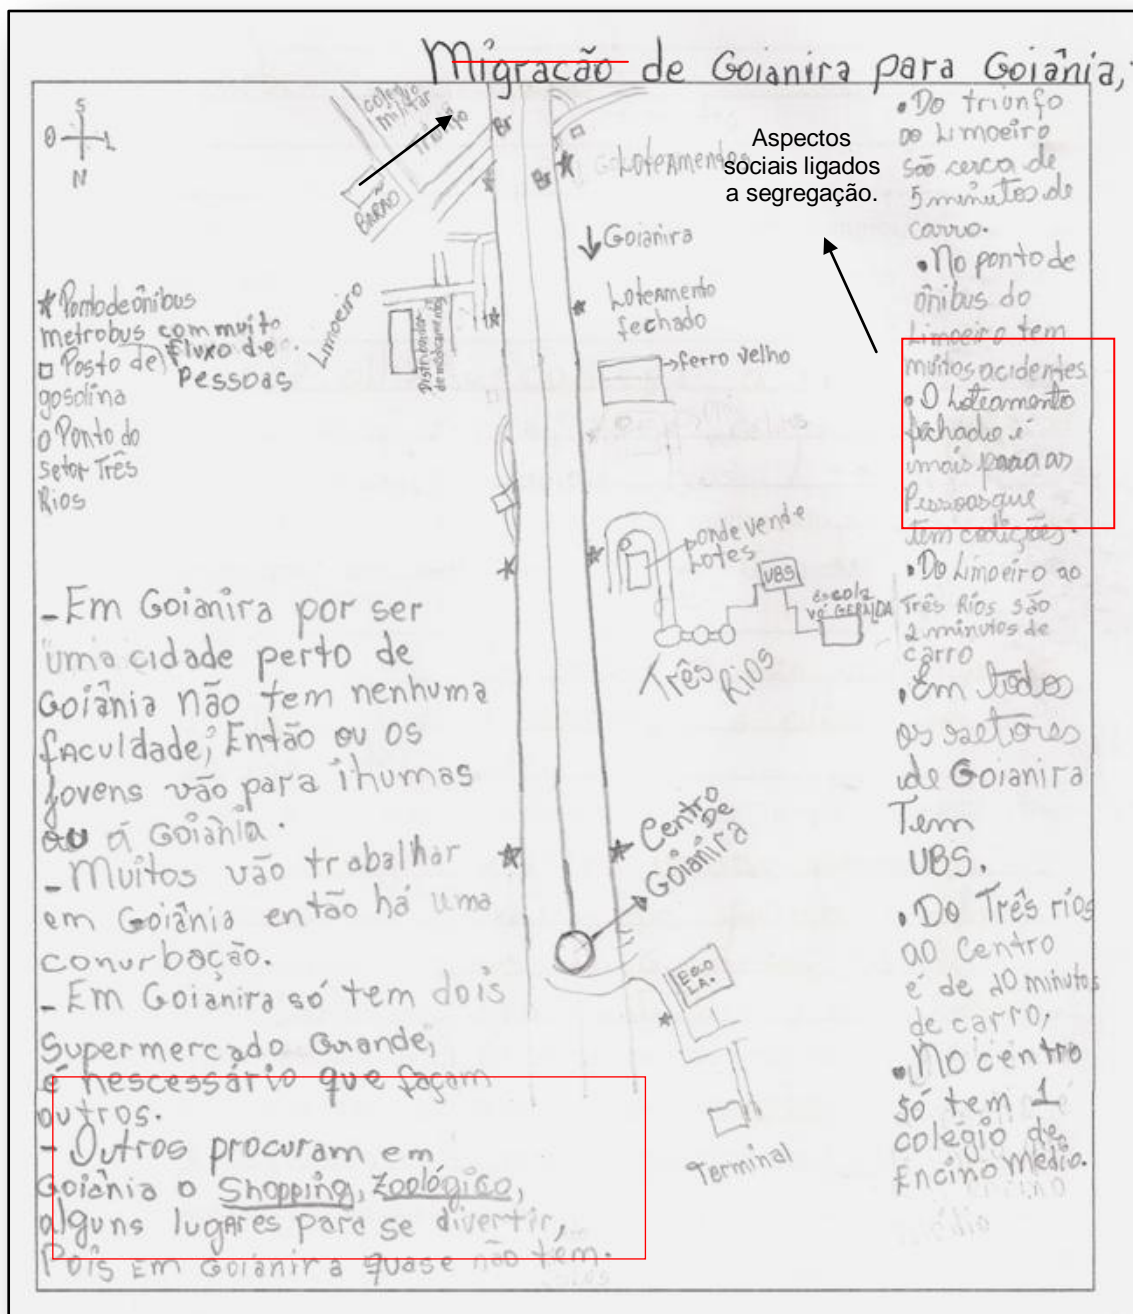 Migração de Goianira para Goiânia,
S
O L
N
colégio
militar
Triunfo
BARÃO
Br
Br
Loteamentos
Aspectos
sociais ligados
a segregação.
↓ Goianira
Loteamento
fechado
→ ferro velho
Limoeiro
Distribuidor
de medicamentos
* Ponto de ônibus
metrobus com muito
fluxo de
Pessoas
□ Posto de
gosolina
o Ponto do
setor Três
Rios
onde vende
Lotes
UBS
escola
vó GERALDA
Três Rios
Centro
De
Goianira
ESCO
LA.
Terminal
- Em Goianira por ser
uma cidade perto de
Goiânia não tem nenhuma
faculdade, Então ou os
jovens vão para ihumas
ou á Goiânia.
- Muitos vão trabalhar
em Goiânia então há uma
conurbação.
- Em Goianira só tem dois
Supermercado Grande,
é nescessário que façam
outros.
- Outros procuram em
Goiânia o Shopping, Zoológico,
alguns lugares para se divertir,
Pois em Goianira quase não tem.
• Do triunfo
ao Limoeiro
são cerca de
5 minutos de
carro.
• No ponto de
ônibus do
Limoeiro tem
muitos acidentes
• O Loteamento
fechado é
mais para as
Pessoas que
tem codições.
• Do Limoeiro ao
Três Rios são
2 minutos de
carro
• Em todos
os setores
de Goianira
Tem
UBS.
• Do Três rios
ao Centro
é de 10 minutos
de carro,
• No centro
só tem 1
colégio de
Encino Médio.